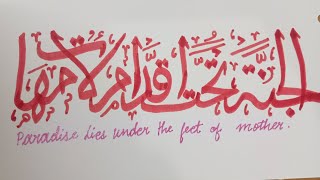 الجنَّة تحتَ اقدَام الامّهات
Paradise Lies under the feet of mother.